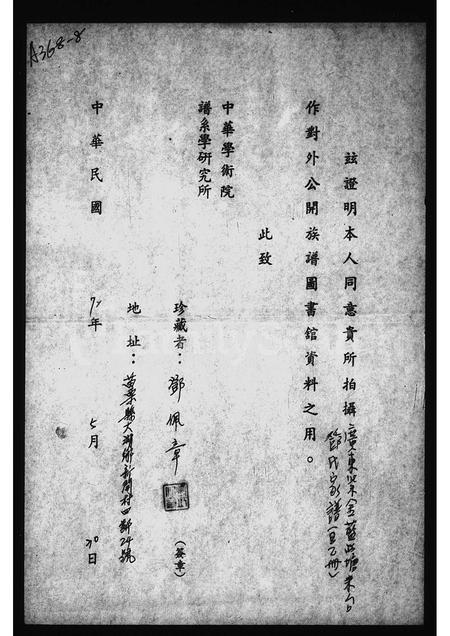 A368-8
茲證明本人同意貴所拍攝廣東
鄧氏家譜
作對外公開族譜圖書館資料之用。
此致
中華學術院
譜系學研究所
珍藏者：鄧佩章（簽章）
地址：苗栗縣大湖鄉新開村四鄰24號
中華民國 年 5月 30日